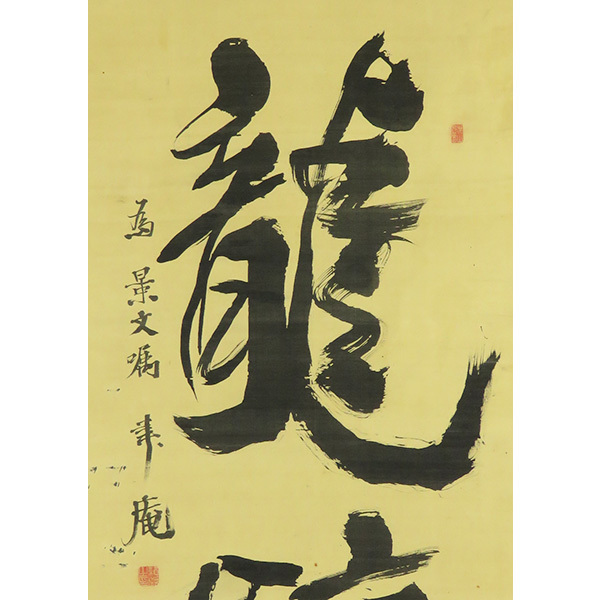 龍
為景文嘱 聿庵